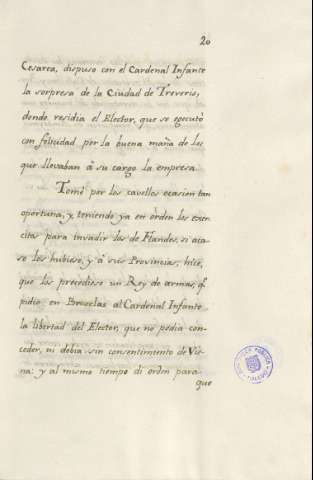 20
Cesarea, dispuso con el Cardenal Infante
la sorpresa de la Ciudad de Treveris,
donde residia el Elector, que se egecutó
con felicidad por la buena maña de los
que llevaban á su cargo la empresa.
Tomé por los cavellos ocasion tan
oportuna, y, teniendo ya en órden los exer-
citos para invadir los de Flandes, si aca-
so los hubiese, y á sus Provincias, hice,
que los precediese un Rey de armas, q.^e
pidio en Bruselas al Cardenal Infante
la libertad del Elector, que no podia con-
ceder, ni debia sin consentimiento de Vie-
na: y al mismo tiempo di orden para
que